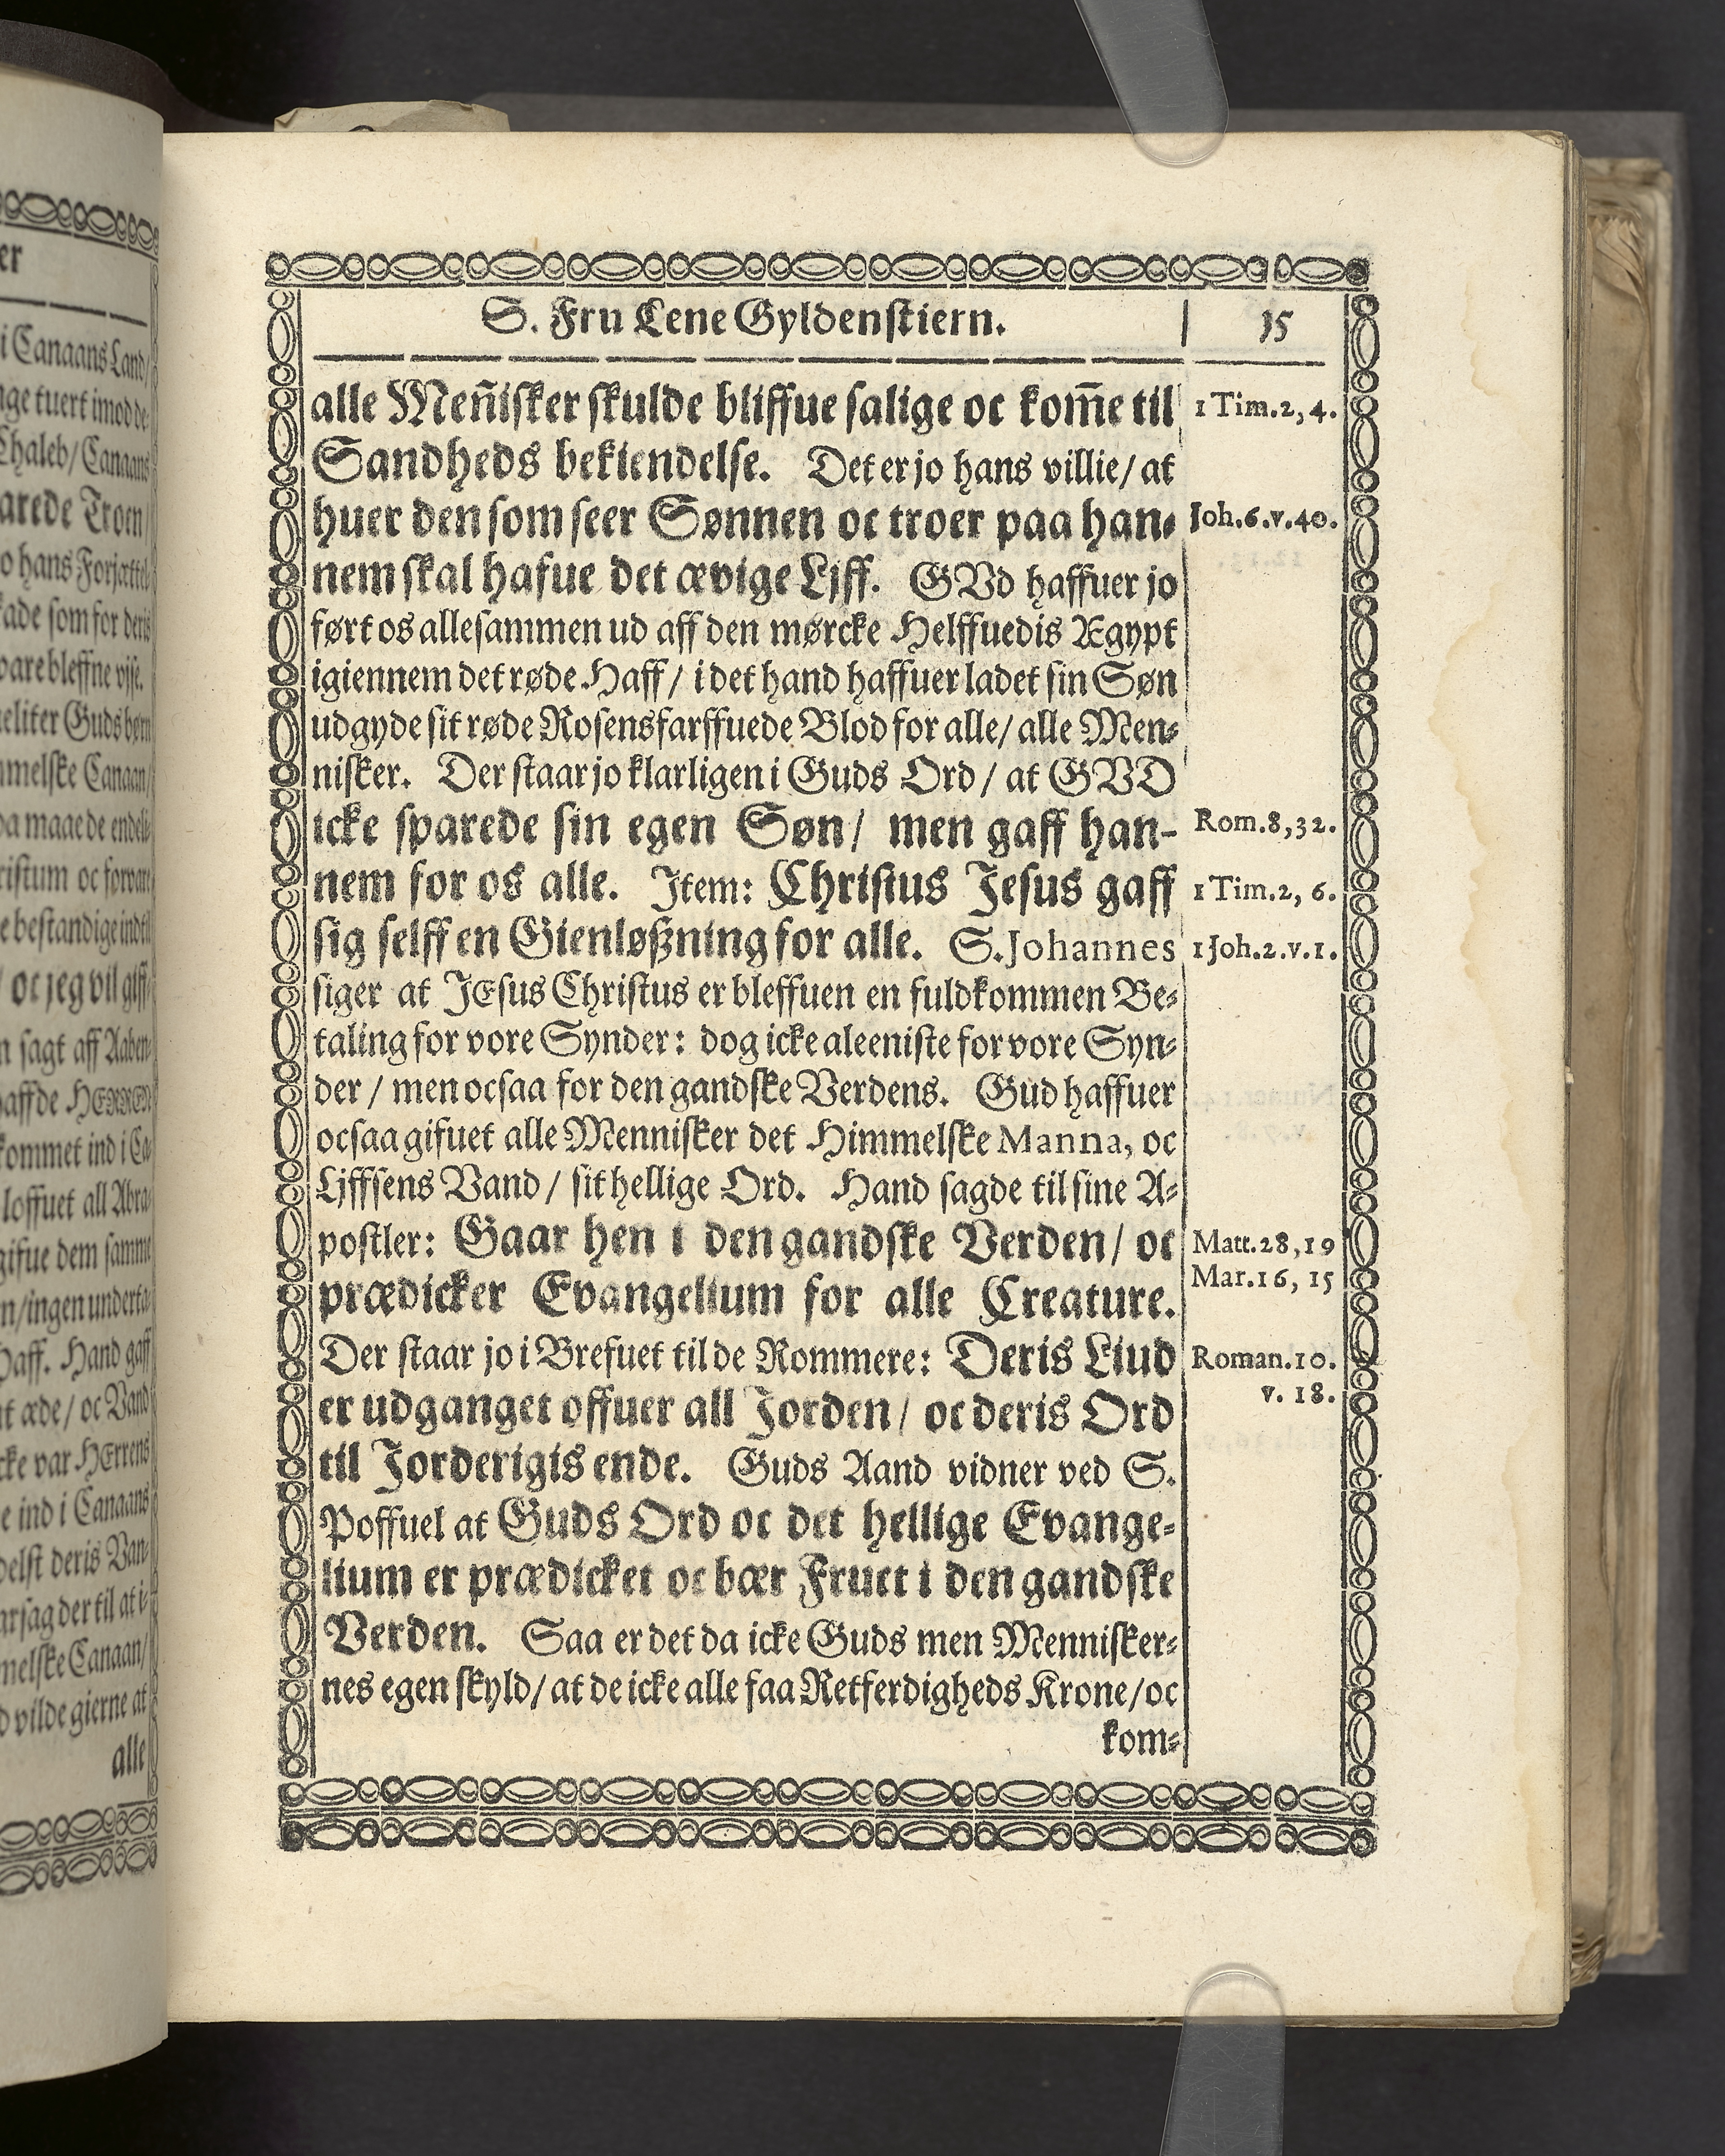 S. Fru Lene Gyldenstiern. 15
alle Meñisker skulde bliffue salige oc kom̃e til
1 Tim.2, 4.
Sandheds bekiendelse. Det er jo hans villie/ at
huer den som seer Sønnen oc troer paa han-
Joh.6.v.40.
nem skal hafue det ævige Ljff. GVd haffuer jo
ført os allesammen ud aff den mørcke Helffuedis Ægypt
igiennem det røde Haff/ i det hand haffuer ladet sin Søn
udgyde sit røde Rosensfarffuede Blod for alle/ alle Men-
nisker. Der staar jo klarligen i Guds Ord/ at GVD
icke sparede sin egen Søn/ men gaff han-
Rom.8,32.
nem for os alle. Item: Christus Jesus gaff
1 Tim.2, 6.
sig selff en Gienløßning for alle. S. Johannes
1 Joh.2.v.1.
siger at JEsus Christus er bleffuen en fuldkommen Be-
taling for vore Synder: dog icke aleeniste for vore Syn-
der/ men ocsaa for den gandske Verdens. Gud haffuer
ocsaa gifuet alle Mennisker det Himmelske Manna, oc
Ljffsens Vand/ sit hellige Ord. Hand sagde til sine A-
postler: Gaar hen i den gandske Verden/ oc
Matt.28,19
prædicker Evangelium for alle Creature.
Mar.16, 15
Der staar jo i Brefuet til de Rommere: Deris Liud
Roman.10.
v. 18.
er udganget offuer all Jorden/ oc deris Ord
til Jorderigis ende. Guds Aand vidner ved S.
Poffuel at Guds Ord oc det hellige Evange-
lium er prædicket oc bær Fruct i den gandske
Verden. Saa er det da icke Guds men Mennisker-
nes egen skyld/ at de icke alle faa Retferdigheds Krone/ oc
kom-